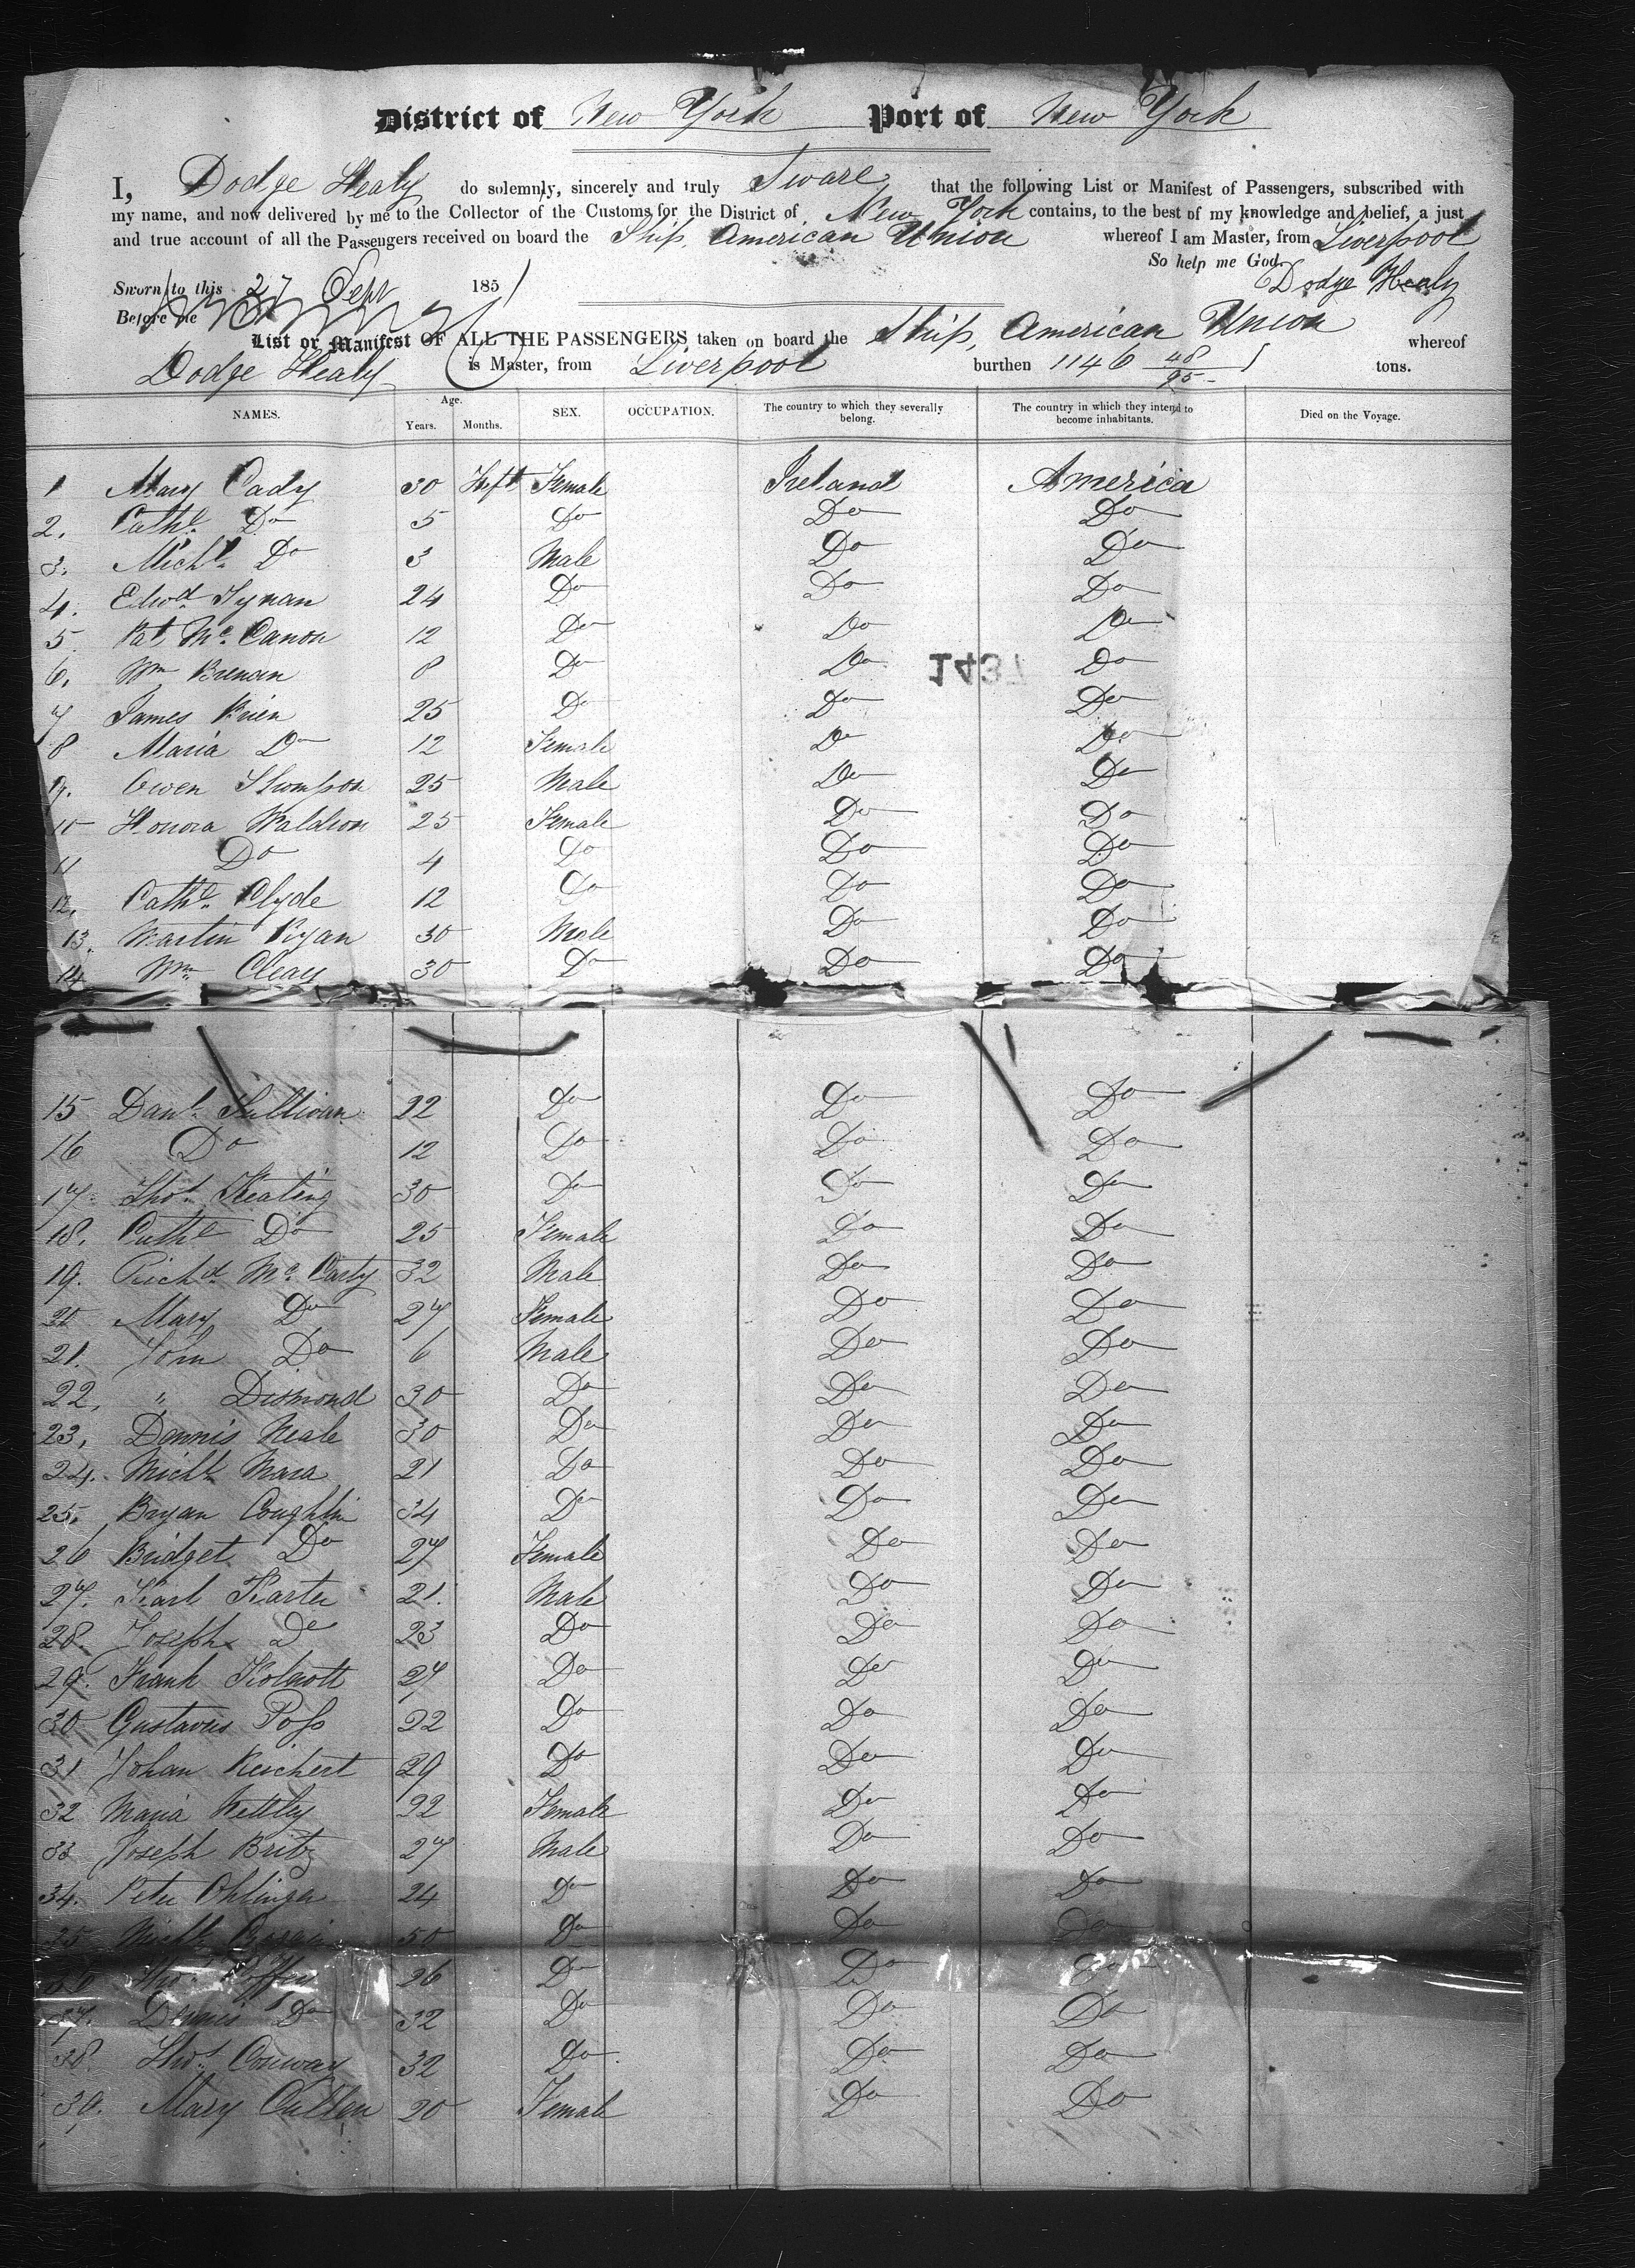 District of New York Port of New York
I, Dodge Healy do solemnly, sincerely and truly Sware that the following List or Manifest of Passengers, subscribed with
my name, and now delivered by me to the Collector of the Customs for the District of New York contains, to the best of my knowledge and belief, a just
and true account of all the Passengers received on board the Ship, American Union whereof I am Master, from Liverpool
So help me God.
Sworn to this 27 Sept 1851 Dodge Healy
Before me
List or Manifest OF ALL THE PASSENGERS taken on board the Ship, American Union whereof
Dodge Healy is Master, from Liverpool burthen 1146 48/95 tons.
NAMES. Age. Years. Months. SEX. OCCUPATION. The country to which they severally belong. The country in which they intend to become inhabitants. Died on the Voyage.
1 Mary Cady 30 Female Ireland America
2. Cathe Do 5 Do Do Do
3. Michl Do 3 Male Do Do
4. Edwd Tynan 24 Do Do Do
5. Pat Mc Canon 12 Do Do Do
6. Wm Brenan 8 Do Do Do
1437
7 James Brien 25 Do Do Do
8 Maria Do 12 Female Do Do
9. Owen Thompson 25 Male Do Do
10 Honora Waldron 25 Female Do Do
11 Do 4 Do Do Do
12. Cathe Clyde 12 Do Do Do
13. Martin Ryan 30 Male Do Do
14 Wm Cleary 30 Do Do Do
15 Danl Sullivan 22 Do Do Do
16 Do 12 Do Do Do
17. Thos Keating 30 Do Do Do
18. Cathe Do 25 Female Do Do
19. Richd Mc Carty 32 Male Do Do
20 Mary Do 27 Female Do Do
21. John Do 6 Male Do Do
22, " Dismond 30 Do Do Do
23, Dennis Neale 30 Do Do Do
24. Michl Mara 21 Do Do Do
25. Bryan Coughlin 34 Do Do Do
26 Bridget Do 27 Female Do Do
27. Karl Karter 21. Male Do Do
28. Joseph Do 23 Do Do Do
29. Frank 27 Do Do Do
30 Gustavus Poss 22 Do Do Do
31 Johan Reichert 29 Do Do Do
32 Maria Kettley 22 Female Do Do
33 Joseph Britz 27 Male Do Do
34. Peter Ohlinger 24 Do Do Do
35 Michl 50 Do Do Do
36 Thos 26 Do Do Do
37. Dennis Do 32 Do Do Do
38. Thos Conway 32 Do Do Do
39. Mary Cullen 20 Female Do Do